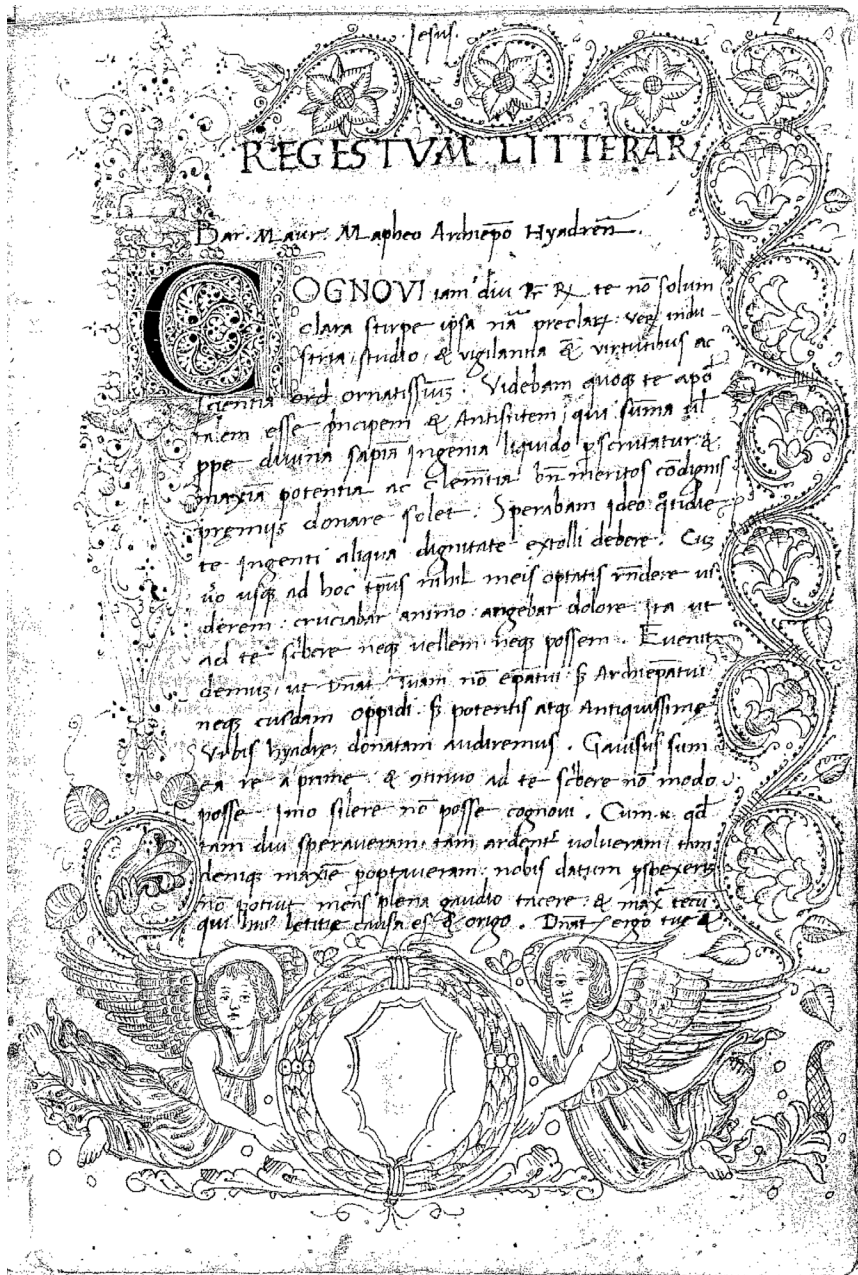 Jesus.
REGESTVM LITTERAR
Bar. Maur. Mapheo Archiep̄o Hyadren̄.
COGNOVI iam diu te nō solum
clara stirpe ipsa nā preclarū: indu
stria, studio, & vigilantia & virtutibus ac
scientia ornatissimū. Videbam quoqꝫ te
talem esse principem & Antistitem, qui sūma
divina sapīa ingenia liquido p̱scrutatur &
maxīa potentia ac clemētia bn̄ meritos cōdignis
pręmijs donare solet. Sperabam ideo
te ingenti aliqua dignitate extolli debere. Cuꝫ
v̊o usqꝫ ad hoc tp̄us nihil meis optatis rn̄dere vi
derem: cruciabar animo: angebar dolore: Ita ut
ad te scͥbere neqꝫ vellem neqꝫ possem. Evenit
demuꝫ, ut Tuam nō ep̄atui Archiep̄atui
neqꝫ cusdam oppidi potentis atqꝫ Antiquissimę
Urbis hyadrę donatam audiremus. Gavisus sum
ea re apprime & ꝯtinuo ad te scͥbere nō modo
posse Imo silere nō posse cognovi. Cum qd̄
tam diu speraveram, tam ardent̄ volveram, tam
deniqꝫ maxīe p̱optaveram, nobis datum
nō potuit mens plena gaudio tacere: & max̄ tecū
qui letitię causa es & origo. ergo tuę &